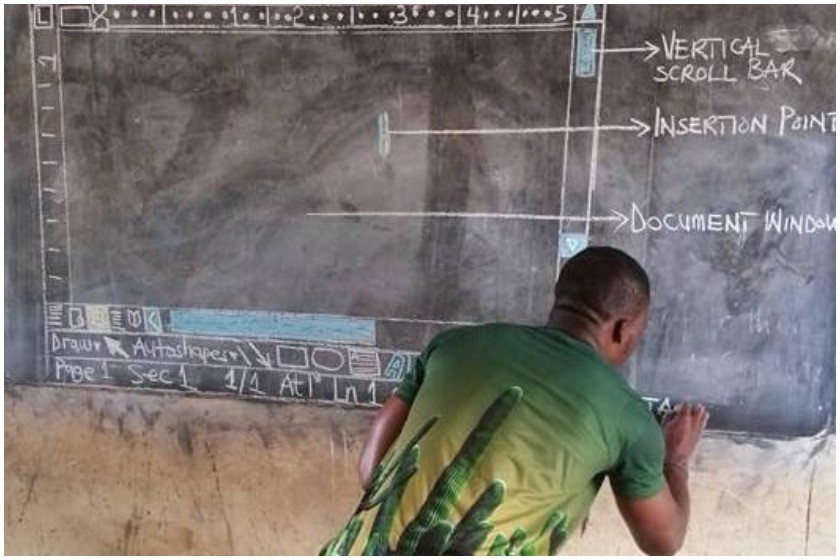 L 1 2 3 4 5
1
VERTICAL
SCROLL BAR
INSERTION POINT
DOCUMENT WINDOW
Draw AutoShapes A
Page 1 Sec 1 1/1 At 1" Ln 1
TA